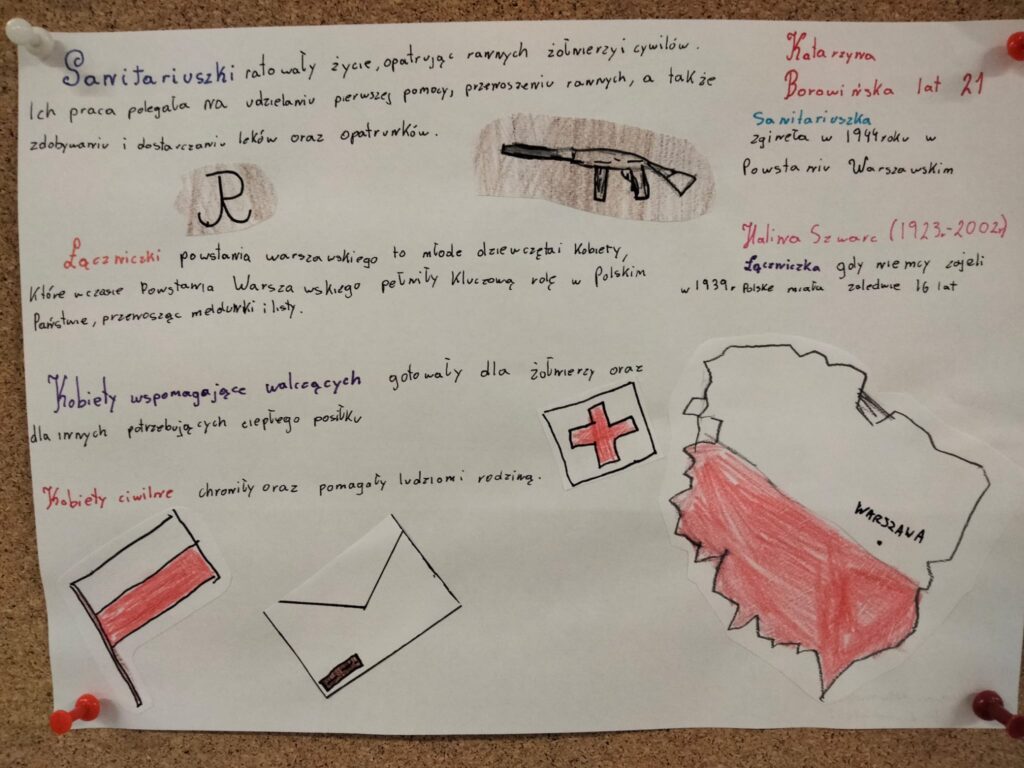 Sanitariuszki ratowały życie, opatrując rannych żołnierzy i cywilów.
Ich praca polegała na udzielaniu pierwszej pomocy, przenoszeniu rannych, a także
zdobywaniu i dostarczaniu leków oraz opatrunków.
Łączniczki powstania warszawskiego to młode dziewczęta i kobiety,
Które w czasie Powstania Warszawskiego pełniły kluczową rolę w Polskim
Państwie, przenosząc meldunki i listy.
Kobiety wspomagające walczących gotowały dla żołnierzy oraz
dla innych potrzebujących ciepłego posiłku
Kobiety ciwilne chroniły oraz pomagały ludziom i rodziną.
Katarzyna
Borowińska lat 21
Sanitariuszka
zgineła w 1944 roku w
Powstaniu Warszawskim
Halina Szwarc (1923r.-2002r)
Łączniczka gdy niemcy zajeli
w 1939r Polske miała zaledwie 16 lat
WARSZAWA